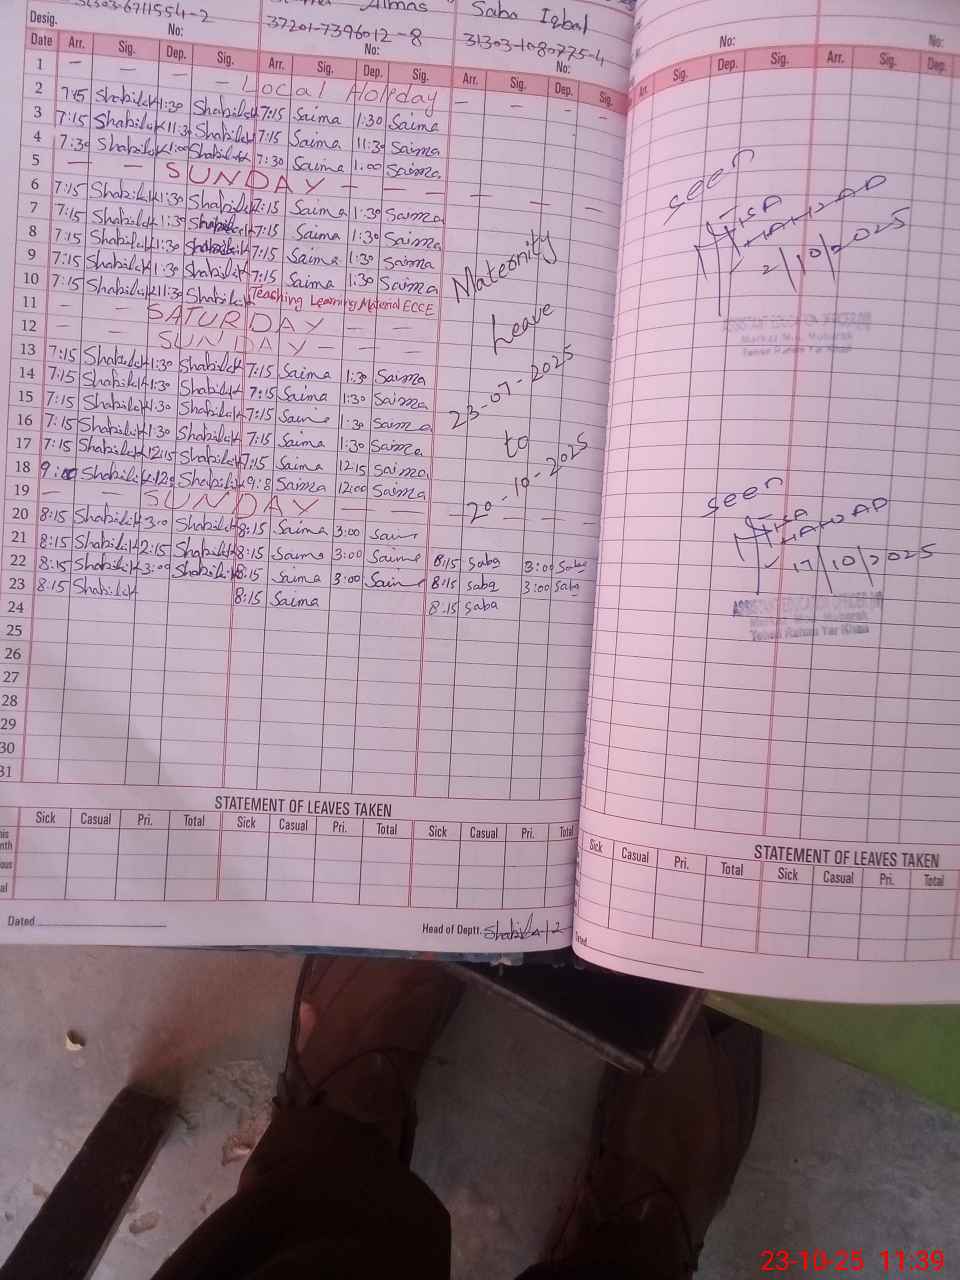 31303-6711554-2 Almas Saba Iqbal
Desig. 37201-7396012-8 31303-1080775-4
No: No: No: No: No:
Date Arr. Sig. Dep. Sig. Arr. Sig. Dep. Sig. Arr. Sig. Dep. Sig. Arr. Sig. Dep. Sig. Arr. Sig. Dep.
1 — — — — Local Holiday — — — —
2 7:15 Shabilah 1:30 Shabilah 7:15 Saima 1:30 Saima
3 7:15 Shabilah 11:30 Shabilah 7:15 Saima 11:30 Saima
4 7:30 Shabilah 1:00 Shabilah 7:30 Saima 1:00 Saima
5 — — SUNDAY — — — — — — —
6 7:15 Shabilah 1:30 Shabilah 7:15 Saima 1:30 Saima
7 7:15 Shabilah 1:30 Shabilah 7:15 Saima 1:30 Saima
8 7:15 Shabilah 1:30 Shabilah 7:15 Saima 1:30 Saima
9 7:15 Shabilah 1:30 Shabilah 7:15 Saima 1:30 Saima
10 7:15 Shabilah 11:30 Shabilah Teaching Learning Material ECCE
11 — — SATURDAY — —
12 — — SUNDAY — — —
13 7:15 Shabilah 1:30 Shabilah 7:15 Saima 1:30 Saima
14 7:15 Shabilah 1:30 Shabilah 7:15 Saima 1:30 Saima
15 7:15 Shabilah 1:30 Shabilah 7:15 Saima 1:30 Saima
16 7:15 Shabilah 1:30 Shabilah 7:15 Saima 1:30 Saima
17 7:15 Shabilah 12:15 Shabilah 7:15 Saima 12:15 Saima
18 Shabilah Shabilah 9:8 Saima 12:00 Saima
19 — — SUNDAY — — — — — —
20 8:15 Shabilah 3:0 Shabilah 8:15 Saima 3:00 Saima
21 8:15 Shabilah 2:15 Shabilah 8:15 Saima 3:00 Saima 8:15 Saba 3:00 Saba
22 8:15 Shabilah 3:00 Shabilah 8:15 Saima 3:00 Saima 8:15 Saba 3:00 Saba
23 8:15 Shabilah 8:15 Saima 8:15 Saba
24
25
26
27
28
29
30
31
Maternity
Leave
23-07-2025
to
20-10-2025
seen
2/10/2025
seen
17/10/2025
ASSISTANT EDUCATION OFFICER
Tehsil Rahim Yar Khan
STATEMENT OF LEAVES TAKEN
Sick Casual Pri. Total Sick Casual Pri. Total Sick Casual Pri. Total
Dated
Head of Deptt. Shabila
STATEMENT OF LEAVES TAKEN
Sick Casual Pri. Total Sick Casual Pri. Total
23-10-25 11:39